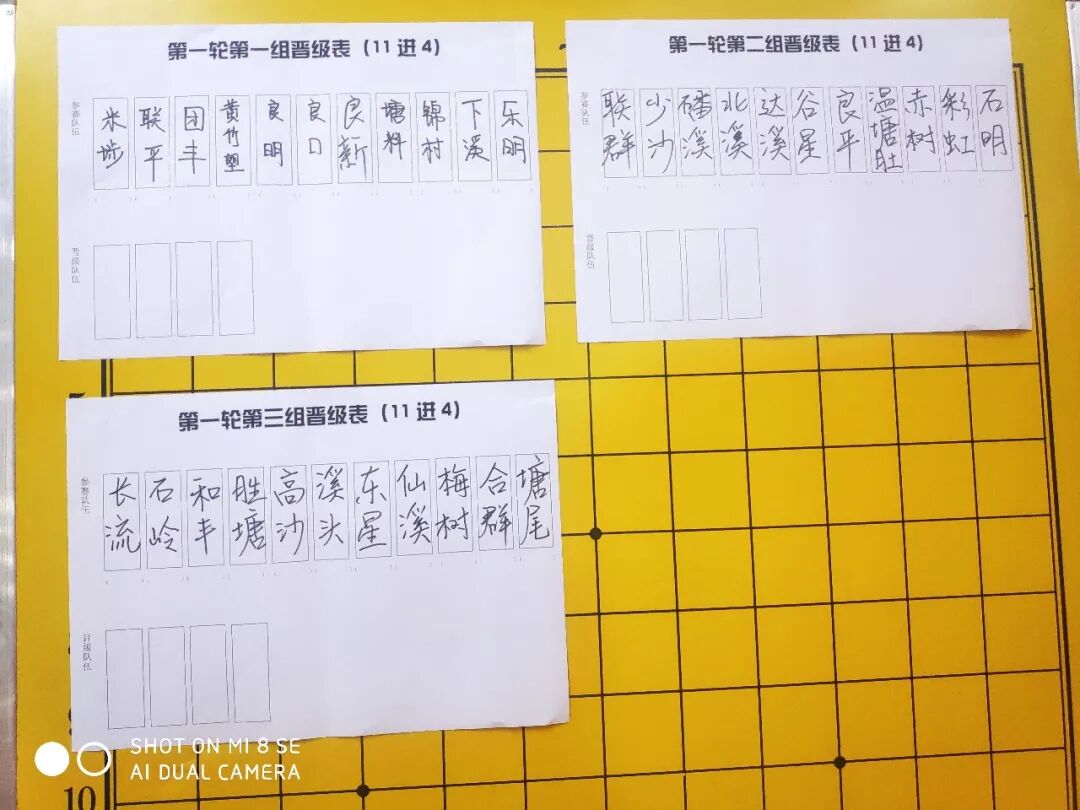 第一轮第一组晋级表（11 进 4）
参赛队伍
米埗 联平 团丰 黄竹塱 良明 良口 良新 塘料 锦村 下溪 乐明
晋级队伍
第一轮第二组晋级表（11 进 4）
参赛队伍
联群 少沙 磻溪 北溪 达溪 谷星 良平 温塘肚 赤树 彩虹 石明
晋级队伍
第一轮第三组晋级表（11 进 4）
参赛队伍
长流 石岭 和丰 胜塘 高沙 溪头 东星 仙溪 梅树 合群 塘尾
晋级队伍
10
SHOT ON MI 8 SE
AI DUAL CAMERA